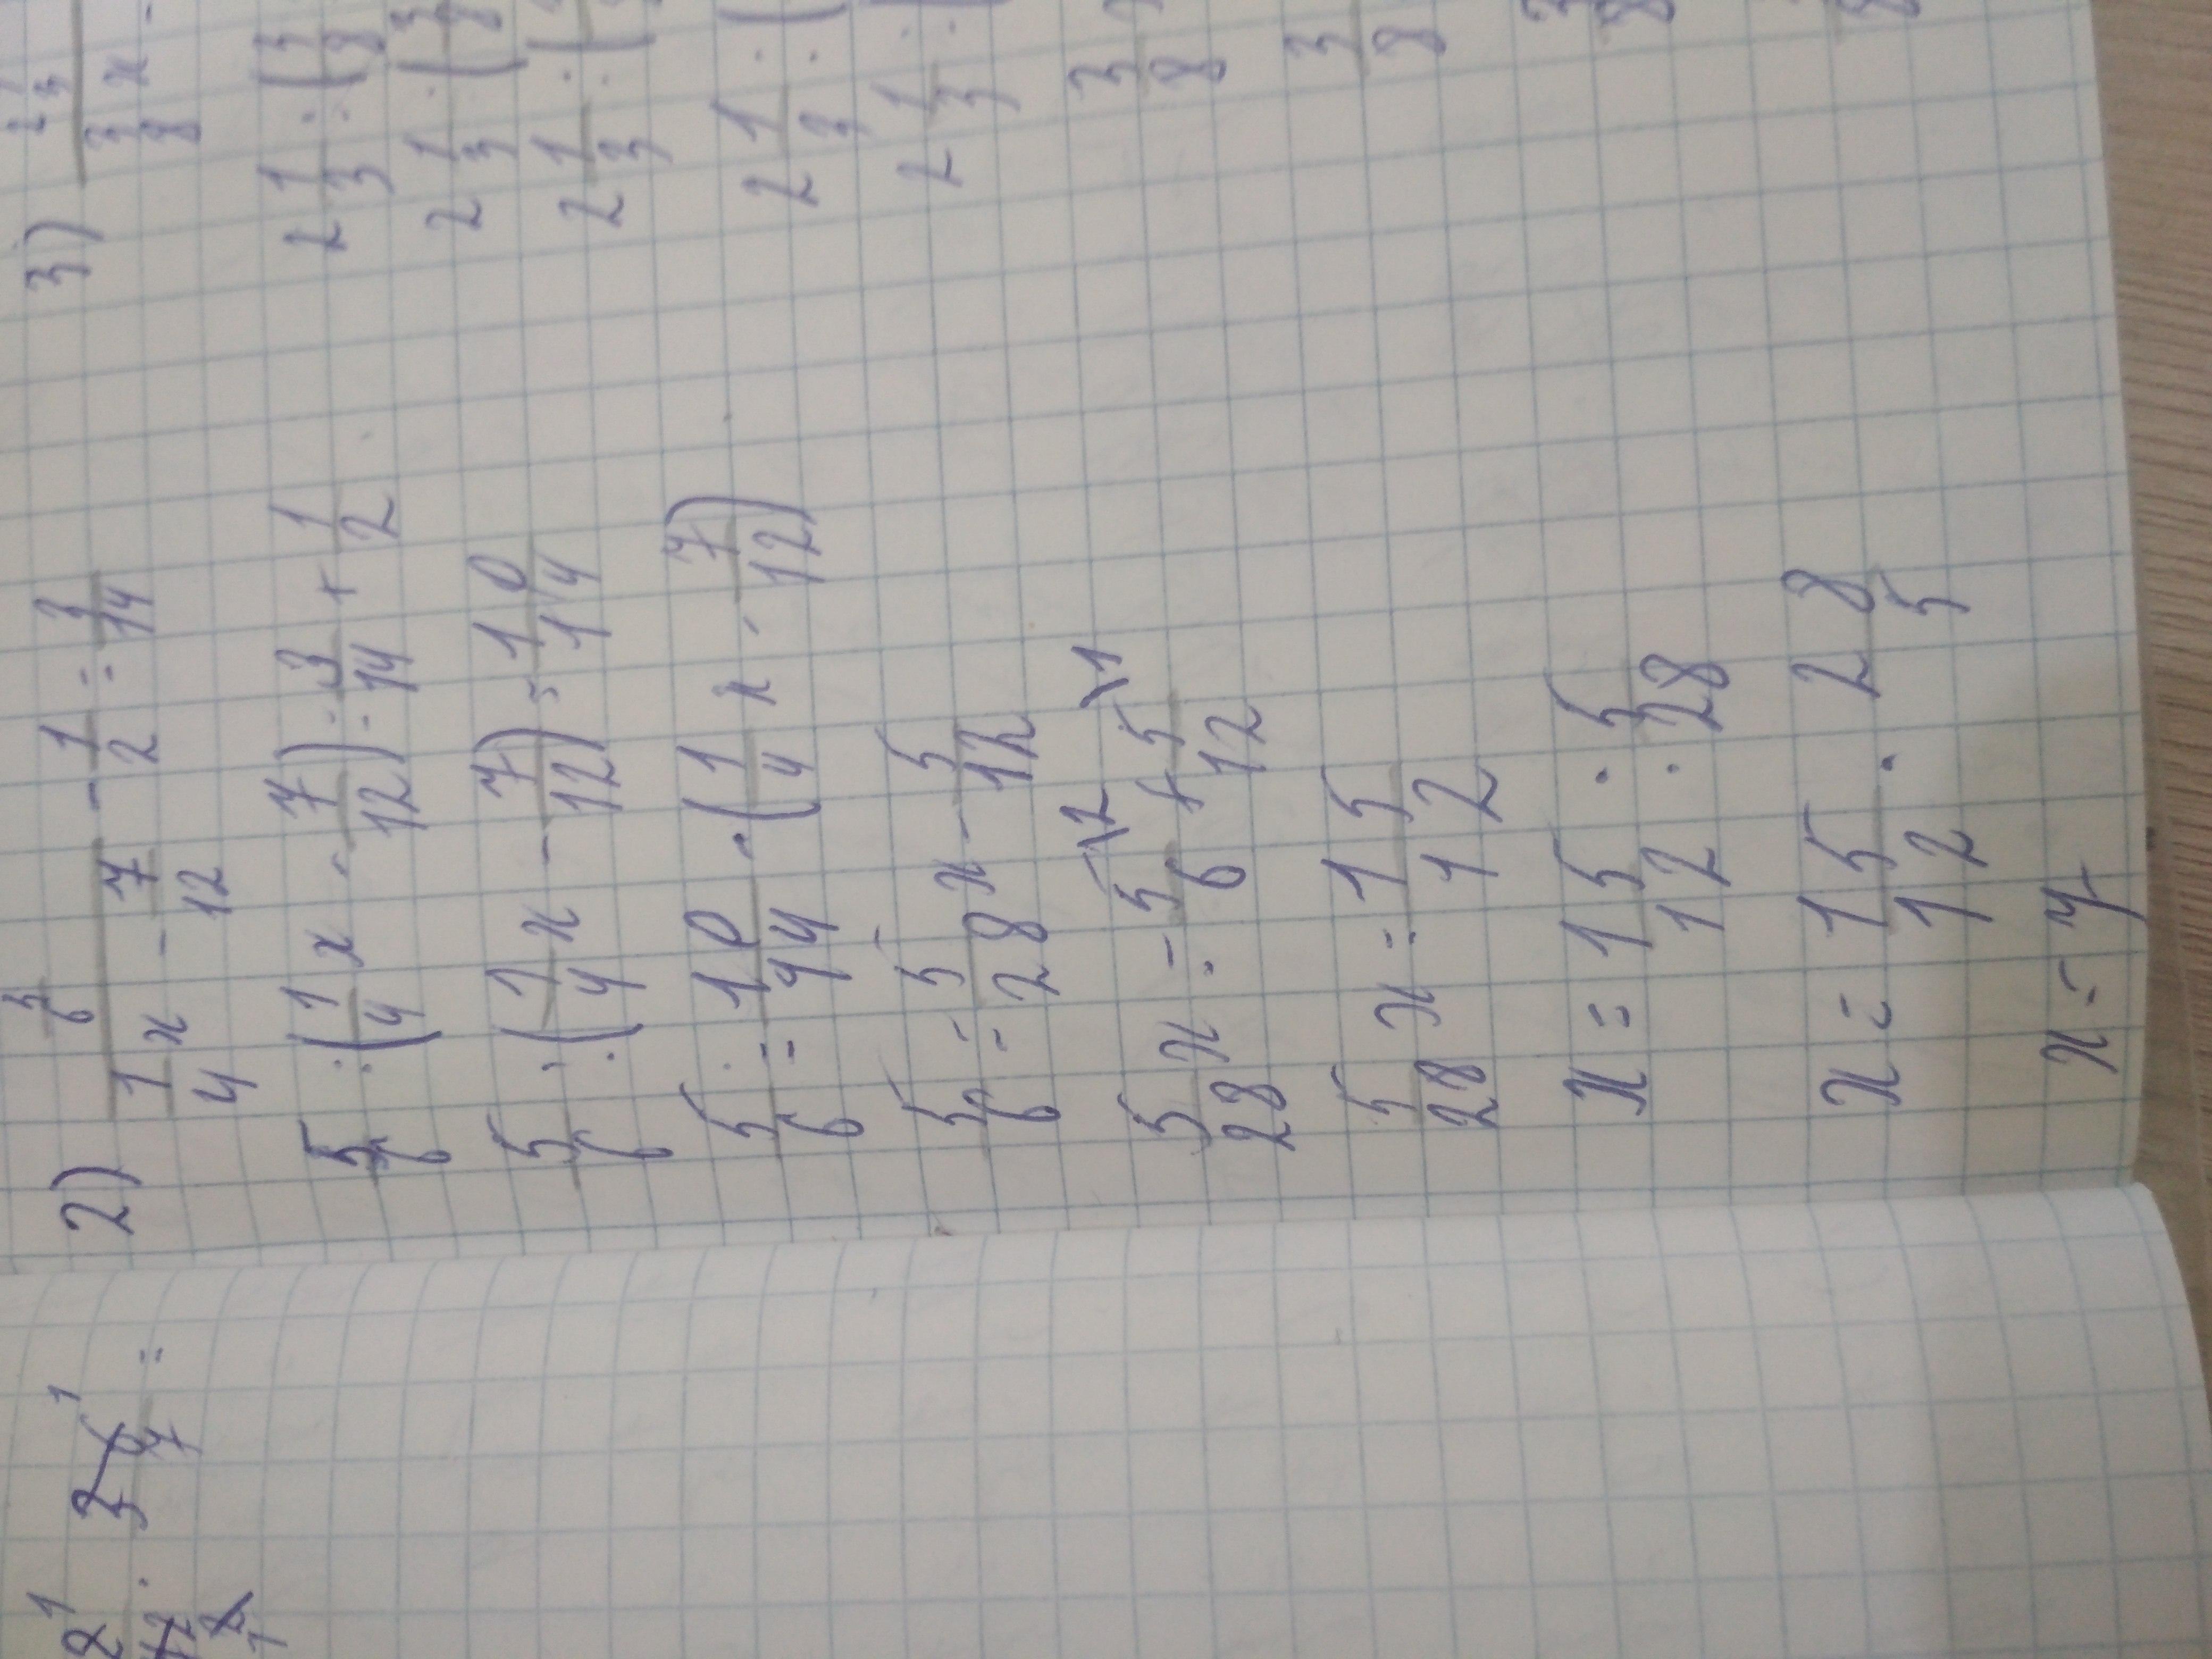 2) 5/6 / (1/4 x - 7/12) - 1/2 = 3/14
5/6 : (1/4 x - 7/12) = 3/14 + 1/2
5/6 : (1/4 x - 7/12) = 10/14
5/6 = 10/14 · (1/4 x - 7/12)
5/6 = 5/28 x - 5/12
5/28 x = 5\2/6 + 5\1/12
5/28 x = 15/12
x = 15/12 : 5/28
x = 15/12 · 28/5
x = 7
3)
2 1/3
3/8 x -
2 1/3 : (3/8
2 1/3 : (3/8
2 1/3 : (
2 1/3 : (
2 1/3 :
3/8
3/8